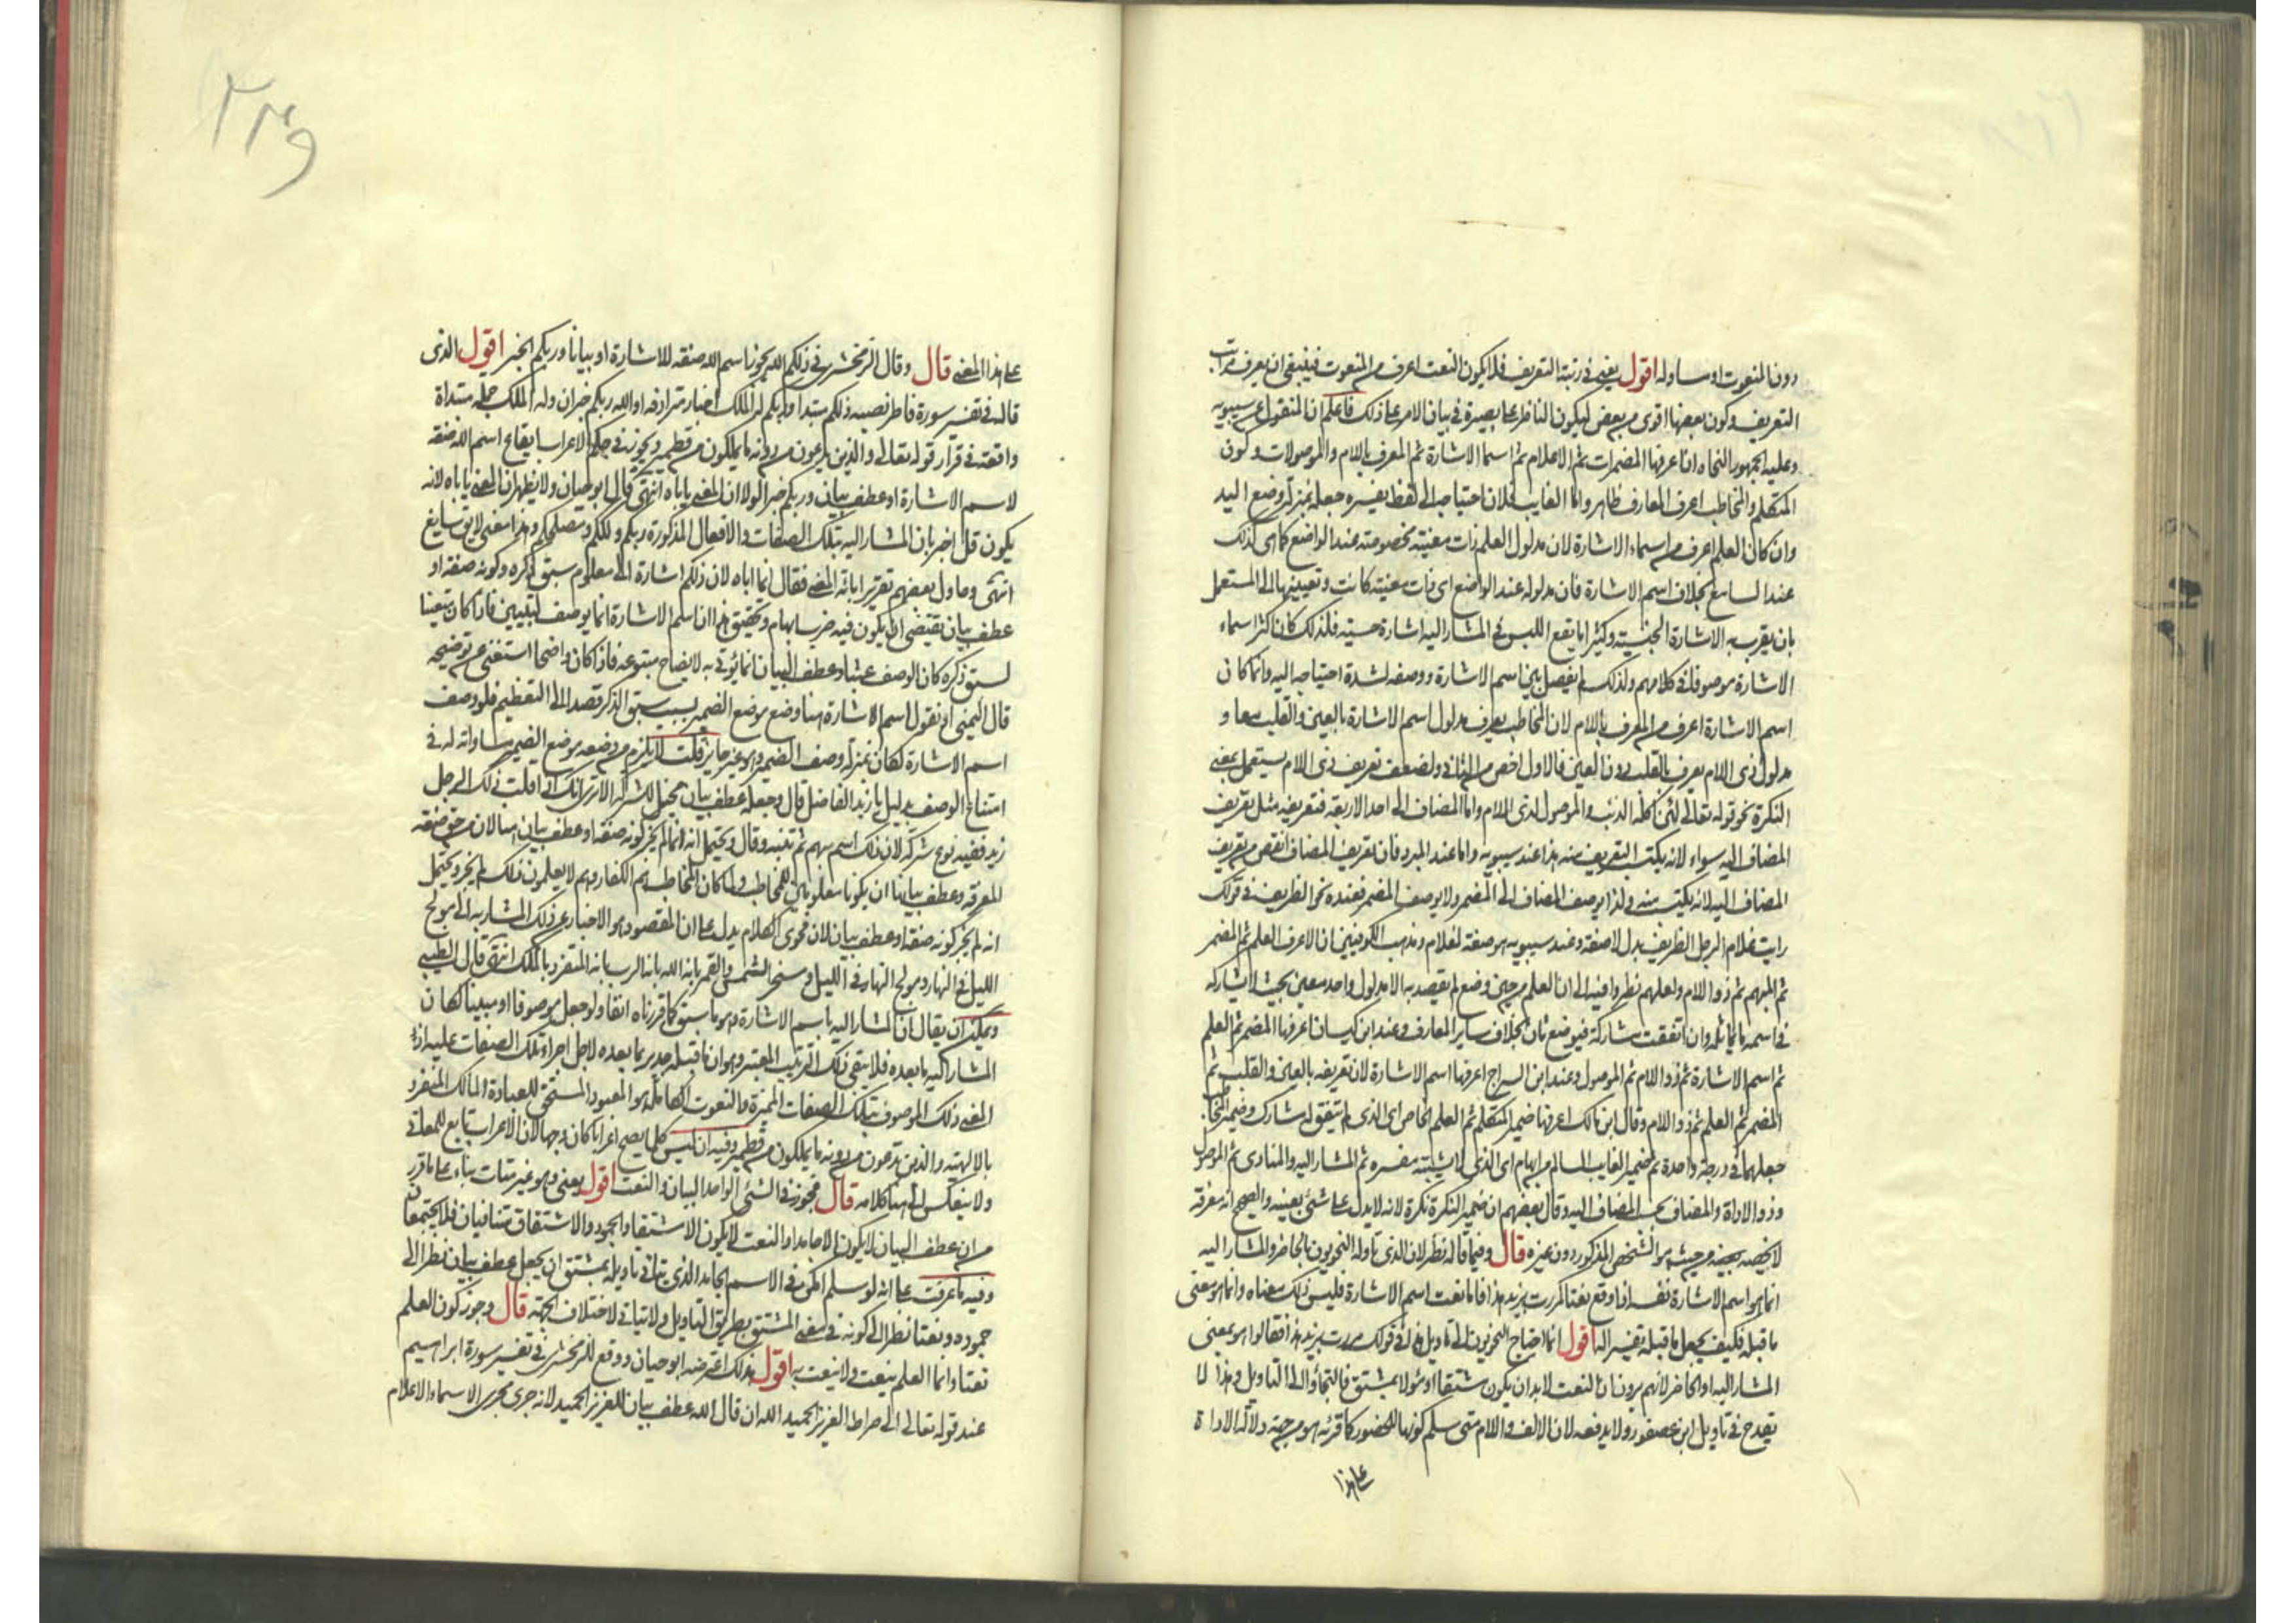 دون المنعوت او مساو له اقول يعنى فى رتبة التعريف فلا يكون النعت اعرف من المنعوت فينبغى ان يعرف مراتب
التعريف وكون بعضها اقوى من بعض ليكون الناظر على بصيرة فى بيان الامر على ذلك فاعلم ان المنقول عن سيبويه
وعليه الجمهور النحاه ان اعرفها المضمرات ثم الاعلام ثم اسما الاشارة ثم المعرف باللام والموصولات وكون
المتكلم والمخاطب اعرف المعارف ظاهر واما الغايب فلان احتياجه الى لفظ يفسره جعله بمنزلة وضع اليد
وان كان العلم اعرف من اسماء الاشارة لان مدلول العلم ذات معينة مخصوصة عند الواضع كما هى كذلك
عند السامع بخلاف اسم الاشارة فان مدلوله عند الواضع اى ذات معينة كانت وتعيينها الى المستعمل
بان يقرب به الاشارة الحسية وكثيرا ما يقع اللبس فى المشار اليه اشارة حسية فلذلك كان اكثر اسماء
الاشارة موصوفا فى كلامهم ولذلك لم يفصل بين اسم الاشارة ووصفه لشدة احتياجه اليه وانما كان
اسم الاشارة اعرف من المعرف باللام لان المخاطب يعرف مدلول اسم الاشارة بالعين والقلب معا و
مدلول ذى اللام يعرف بالقلب دون العين فالاول اخص من الثانى ولضعف تعريف ذى اللام يستعمل بمعنى
النكرة نحو قوله تعالى لئن اكله الذئب والموصول لذى اللام واما المضاف الى احد الاربعة فتعريفه مثل تعريف
المضاف اليه سواء لانه يكتسب التعريف منه هذا عند سيبويه واما عند المبرد فان تعريف المضاف انقص من تعريف
المضاف اليه لانه يكتسب منه ولذا يوصف المضاف الى المضمر ولا يوصف المضمر فعنده نحو الظريف فى قولك
رايت غلام الرجل الظريف بدل لا صفة وعند سيبويه هو صفة لغلام ومذهب الكوفيين ان الاعرف العلم ثم المضمر
ثم المبهم ثم ذو اللام ولعلهم نظروا فيه الى ان العلم من حين وضع لم يقصد به الا مدلول واحد معين بحيث لا يشاركه
فى اسمه ما يماثله وان اتفقت مشاركة فبوضع ثان بخلاف ساير المعارف وعند ابن كيسان اعرفها المضمر ثم العلم
ثم اسم الاشارة ثم ذو اللام ثم الموصول وعند ابن السراج اعرفها اسم الاشارة لان تعريفه بالعين والقلب ثم
المضمر ثم العلم ثم ذو اللام وقال ابن مالك اعرفها ضمير المتكلم ثم العلم الخاص اى الذى لم يتفق له مشارك وضمير المخاطب
جعلهما فى درجة واحدة ثم ضمير الغايب السالم من ابهام اى الذى لا يشتبه مفسره ثم المشار اليه والمنادى ثم الموصول
وذو الاداة والمضاف بحسب المضاف اليه وقال بعضهم ان ضمير النكرة نكرة لانه لا يدل على شئ بعينه والصحيح انه معرفة
لا يخصه بعينه من حيث هو الشخص المذكور دون غيره قال وفيما قاله نظر لان الذى تاوله النحويون بالحاضر والمشار اليه
انما هو اسم الاشارة نفسه اذا وقع نعتا كمررت بزيد هذا فاما نعت اسم الاشارة فليس ذلك معناه وانما هو معنى
ما قبله فكيف يجعل ما قبله تفسيرا له اقول انما احتاج النحويون الى تاويل هذا فى قولك مررت بزيد هذا فقالوا هو بمعنى
المشار اليه او الحاضر لانهم يرون ان النعت لا بد ان يكون مشتقا او مؤولا بمشتق فالتجاؤا الى التاويل وهذا لا
يقدح فى تاويل ابن عصفور ولا يدفعه لان الالف واللام متى سلم كونها للحضور كما قرئه هو من جهة دلالة الاداة
على هذا
٢٣٩
على هذا المعنى قال وقال الزمخشرى فى ذلكم الله يجوز اسم الله صفة للاشارة او بيانا وربكم الخبر اقول الذى
قاله فى تفسير سورة فاطر نصبه ذلكم مبتدا وربكم له الملك اخبار مترادفه او الله ربكم خبران وله الملك جملة مبتداة
واقعة فى قرار قوله تعالى والذين يدعون من دونه ما يملكون من قطمير ويجوز فى حكم الاعراب ايقاع اسم الله صفة
لاسم الاشارة او عطف بيان وربكم خبرا لولا ان المعنى ياباه انتهى قال ابو حيان ولا يظهر ان المعنى ياباه لانه
يكون قد اخبر بان المشار اليه بتلك الصفات والافعال المذكورة ربكم ومالككم ومصلحكم وهذا معنى لايق سايغ
انتهى وحاول بعضهم تقرير اباية المعنى فقال انما اباه لان ذلكم اشارة الى معلوم سبق ذكره وكونه صفة او
عطف بيان يقتضى ان يكون فيه ضرب ابهام وتحقيق هذا ان اسم الاشارة انما يوصف لتبيين فاذا كان متعينا
لسبق ذكره كان الوصف عبثا وعطف البيان انما يؤتى به لايضاح متبوعه فاذا كان واضحا استغنى عن توضيحه
قال اليمنى او نقول اسم الاشارة هنا وضع موضع الضمير بسبب سبق الذكر قصدا الى التعظيم فلو وصف
اسم الاشارة لكان بمنزلة وصف الضمير وهو غير جايز قلت لا يلزم من وضعه موضع الضمير مساواته له فى
امتناع الوصف بدليل يا زيد الفاضل قال وجعله عطف بيان مخيل للشركة الا ترى انك اذا قلت ذلك الرجل
زيد ففيه نوع شركة لان ذلك اسم مبهم ثم تبينه وقال ويحتمل انه انما لم يجز كونه صفة او عطف بيان هنا لان من حق صفة
المعرفة وعطف بيانها ان يكونا معلومين للمخاطب ولما كان المخاطب هم الكفار وهم لا يعلمون ذلك لم يجز ويحتمل
انه لم يجز كونه صفة او عطف بيان لان فحوى الكلام يدل على ان المقصود هو الاخبار عن ذلك المشار به الى مولج
الليل فى النهار ومولج النهار فى الليل ومسخر الشمس والقمر بانه الله بانه الرب بانه المتفرد بالملك انتهى قال الطيبى
ويمكن ان يقال ان المشار اليه باسم الاشارة وهو ما سبق كما قررناه انفا ولو جعل موصوفا او مبينا لكان
المشار اليه ما بعده فلا يبقى ذلك الترتيب المعتبر وهو ان ما قبله جدير بما بعده لاجل اجراء تلك الصفات عليه اذ
المعنى ذلك الموصوف بتلك الصفات المميزة والنعوت الكاملة هو المعبود المستحق للعبادة المالك المتفرد
بالالهيته والذين تدعون من دونه ما يملكون من قطمير وفيه ان ليس كل ما يصح اعرابا كان وجها لان الاعراب تابع للمعانى
ولا ينعكس الى هنا كلامه قال فجوز فى الشئ الواحد البيان والنعت اقول يعنى وهو غير متات بناء على ما قرر
من ان عطف البيان لا يكون الا جامدا والنعت لا يكون الا مشتقا والجمود والاشتقاق متنافيان فلا يجتمعان
وفيه ما عرفت على انه لو سلم امكن فى الاسم الجامد الذى يتاتى تاويله بمشتق ان يجعل عطف بيان نظرا الى
جموده ونعتا نظرا الى كونه فى معنى المشتق بطريق التاويل ولا تنافى لاختلاف الجهة قال وجوز كون العلم
نعتا وانما العلم ينعت ولا ينعت به اقول بذلك اعترضه ابو حيان ووقع للزمخشرى فى تفسير سورة ابراهيم
عند قوله تعالى الى صراط العزيز الحميد الله ان قال الله عطف بيان للعزيز الحميد لانه جرى مجرى الاسماء الاعلام